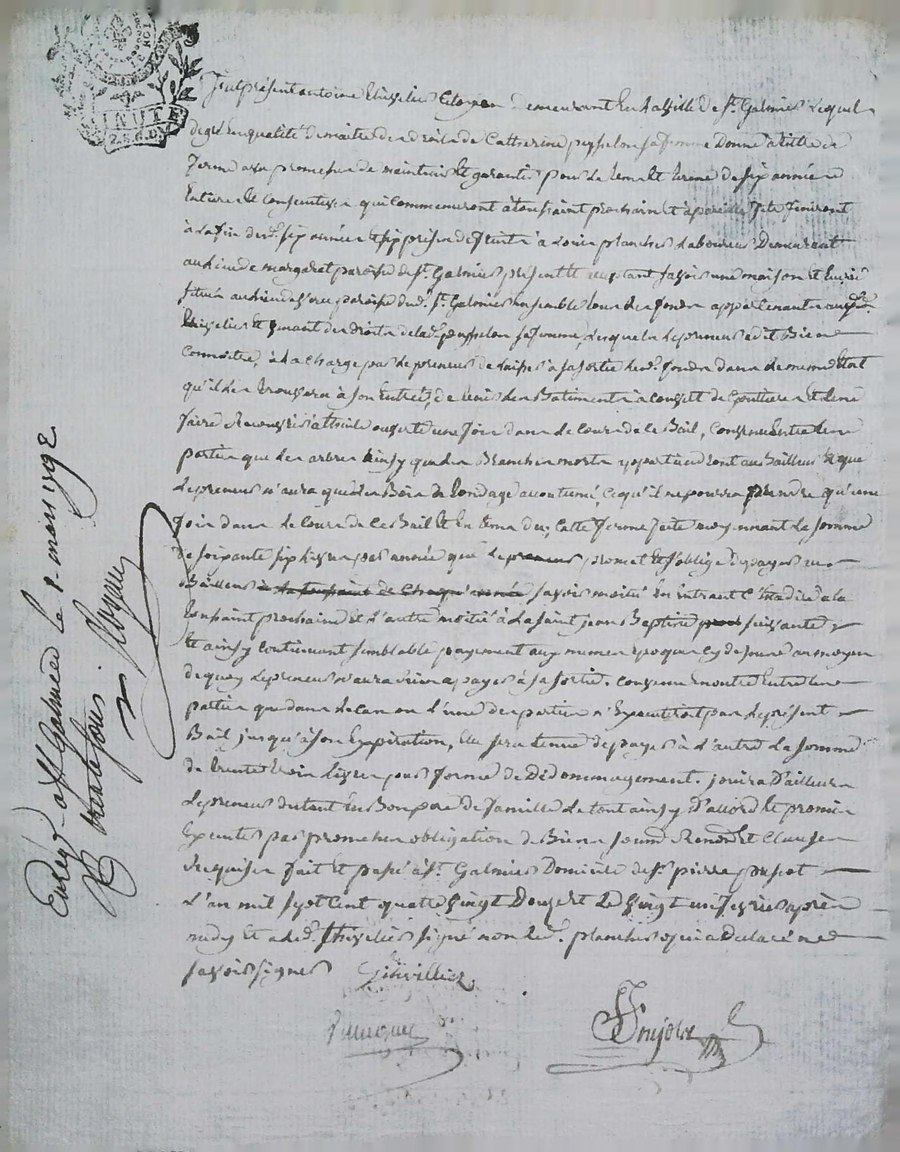 MINUTE
2. S. 6. D.
fut présent antoine thivelier Citoyen demeurant en la ville de St. Galmier Lequel
de gré en qualité de maitre des droits de Catherine peysselon sa femme donne à titre de
ferme avec promesse de maintenir et garantir pour le tems et terme de six années
Entieres et consecutives qui commenceront à toussaint prochain et à pareille fete finiront
à la fin desd. six années à planches Laboureur Demeurant
au lieu de margarat paroisse de St. Galmier présent et acceptant savoir une maison et
situés au lieu paroisse dud. St. Galmier ensemble tous les fonds appartenants aud.
thivelier et venant des droits de lad. peysselon sa femme, Lesquels le preneur a dit Bien
Connoitre, à la charge par le preneur de laisser à sa sortie lesd. fonds dans le meme Etat
qu'il les trouvera à son Entrée, de tenir les Batiments à couvert de goutieres et de les
faire à tuile ouverte une fois dans le cours de le Bail, Convenu Entre les
parties que les arbres ainsy que les Branches mortes appartiendront au Bailleur et que
Le preneur n'aura que les Bois de tondage accoutumé, Ce qu'il ne pourra prendre qu'une
fois dans le cours de ce Bail et En tems du, Cette ferme faite moyennant la somme
de soixante six Livres par année que Le preneur promet et s'oblige de payer au
Bailleur à la toussaint de Chaque année savoir moitié En entrant C'est à dire à la
toussaint prochaine et l'autre moitié à la saint jean Baptiste suivante
Et ainsy continuant semblable payement aux memes epoques au moyen
de quoy Le preneur n'aura rien à payer à sa sortie. Convenu en outre Entre les
parties que dans le cas ou l'une des parties n'Executeroit pas le présent
Bail jusqu'à son Expiration, Elle sera tenue de payer à l'autre La somme
de trente trois Livres pour forme de Dédommagement. jouira D'ailleurs
Le preneur du tout En Bon pere de famille Le tout ainsy D'accord et promis
Executer par promesses obligation de Biens soumis. Renon. et Clauses
Requises fait et passé à St. Galmier Domicile de Sr. pierre
L'an mil sept Cent quatre vingt Douze et Le vingt un fevrier après
midy Et a led. thivelier signé non led. planches qui a déclaré ne
savoir signer Thivillier
Enreg. à St Galmier le 1. mars 1792.